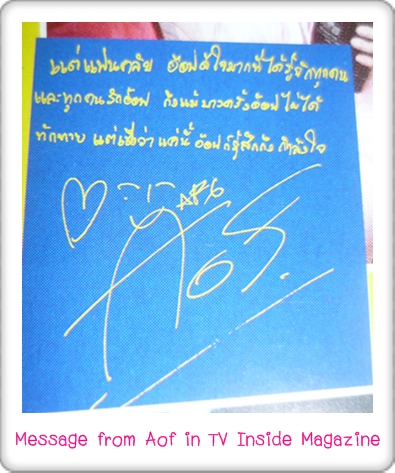 แด่แฟนคลับ อ๊อฟดีใจมากที่ได้รู้จักทุกคน
และทุกคนรักอ๊อฟ ถึงแม้บางครั้งอ๊อฟไม่ได้
ทักทาย แต่เชื่อว่าแค่นี้ อ๊อฟก็รู้สึกถึงกำลังใจ
Message from Aof in TV Inside Magazine